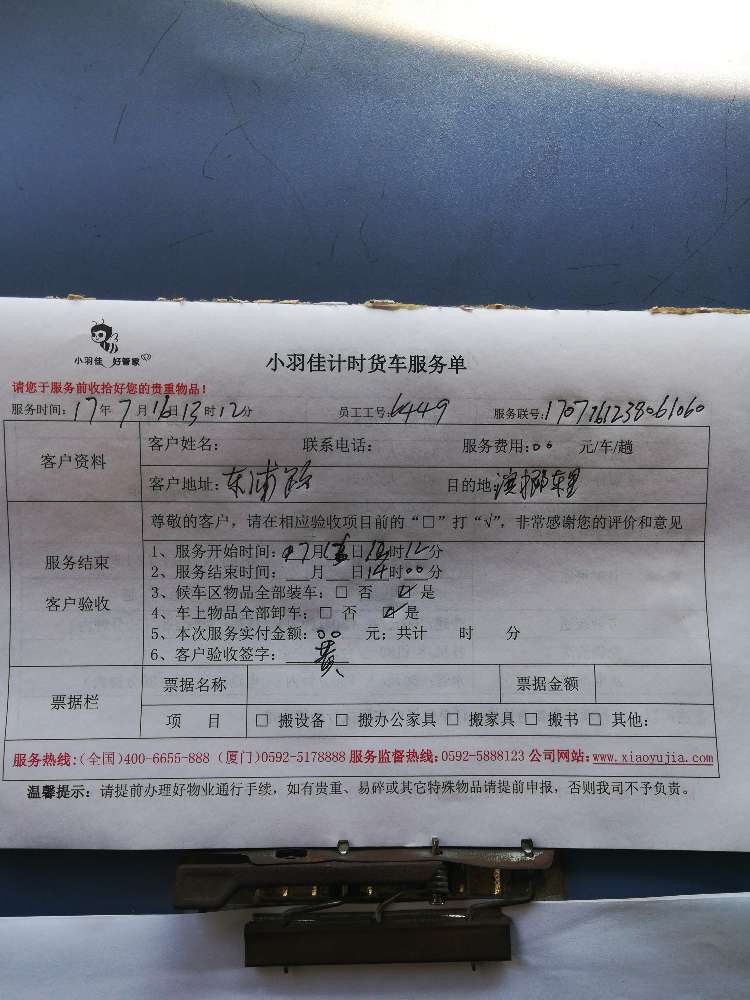 小羽佳 好管家
小羽佳计时货车服务单
请您于服务前收拾好您的贵重物品!
服务时间: 17年7月16日13时12分 员工工号: 6449 服务联号: 1707161238061060
客户资料
客户姓名: 联系电话: 服务费用: 00 元/车/趟
客户地址: 东浦路 目的地:
服务结束
客户验收
尊敬的客户，请在相应验收项目前的“□”打“√”，非常感谢您的评价和意见
1、服务开始时间: 07月日时12分
2、服务结束时间: 月日14时00分
3、候车区物品全部装车: □ 否 ☑ 是
4、车上物品全部卸车: □ 否 ☑ 是
5、本次服务实付金额: 00 元; 共计 时 分
6、客户验收签字: 黄
票据栏
票据名称 票据金额
项 目 □ 搬设备 □ 搬办公家具 □ 搬家具 □ 搬书 □ 其他:
服务热线:(全国)400-6655-888 (厦门)0592-5178888 服务监督热线: 0592-5888123 公司网站: www.xiaoyujia.com
温馨提示: 请提前办理好物业通行手续，如有贵重、易碎或其它特殊物品请提前申报，否则我司不予负责。